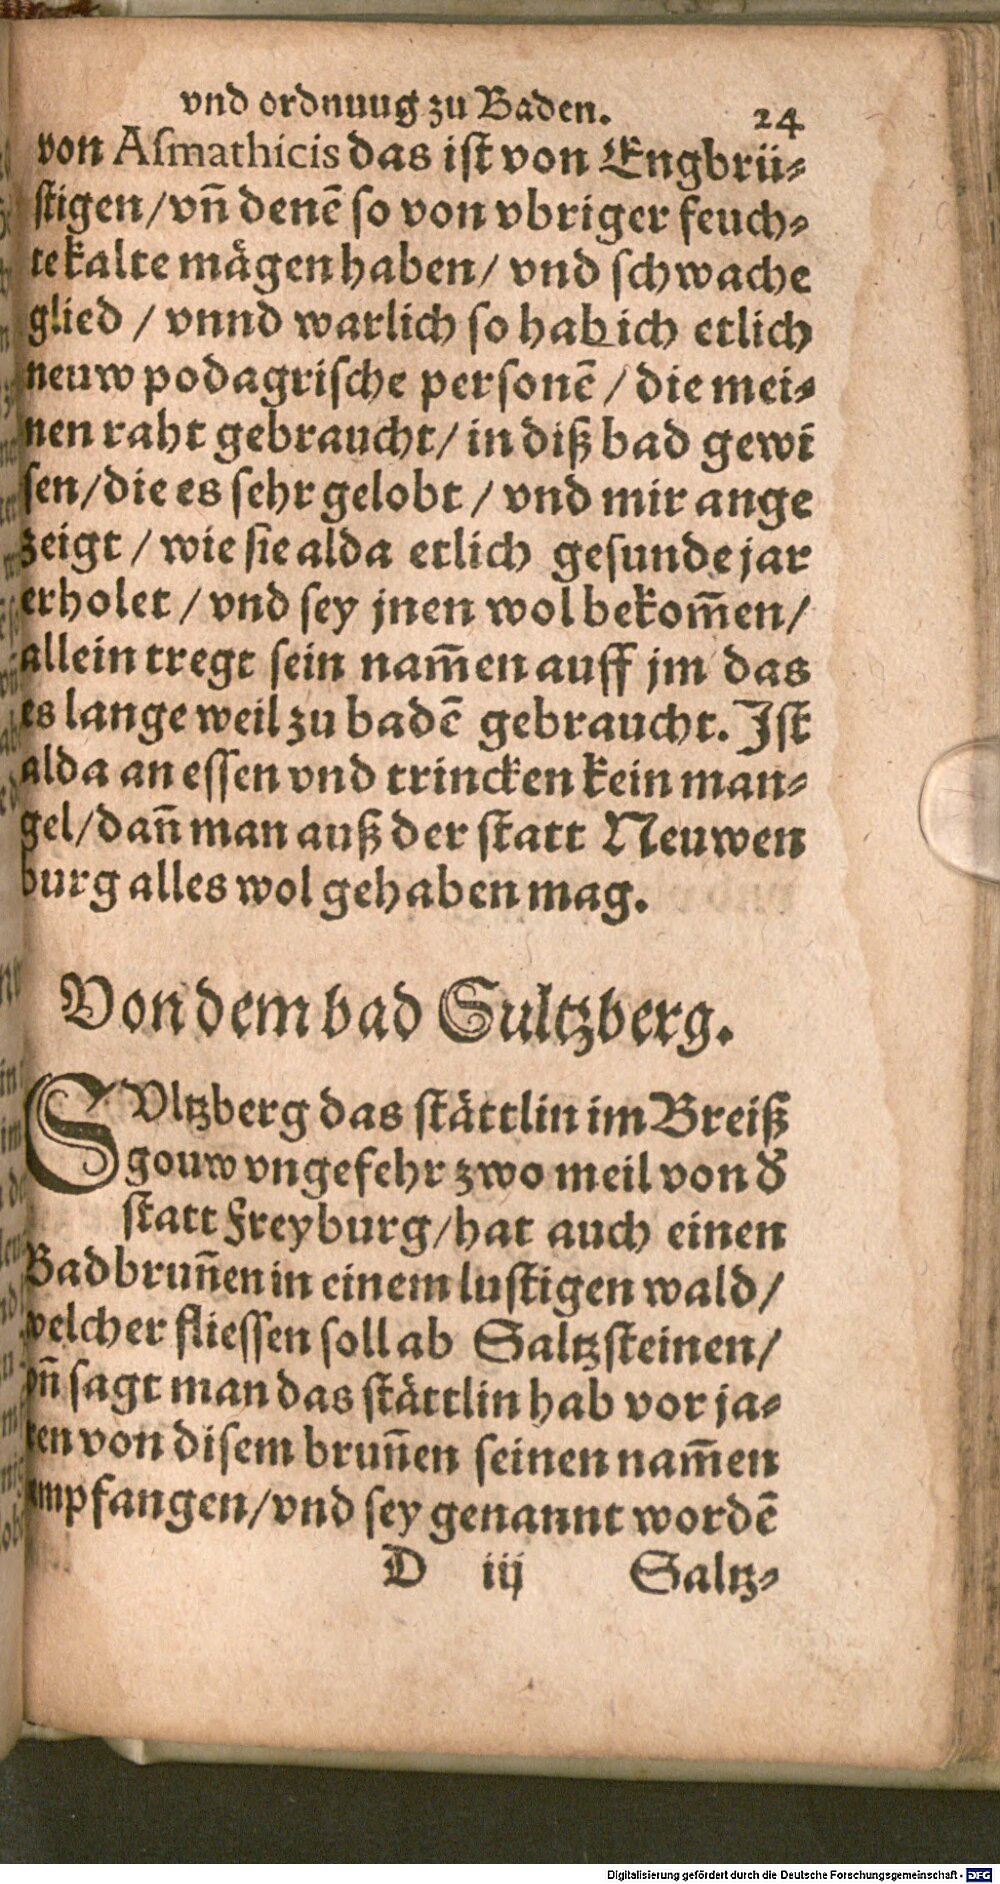 vnd ordnuug zu Baden. 24
von Asmathicis das ist von Engbrü-
stigen/vn̄ denē so von vbriger feuch-
te kalte mägen haben/ vnd schwache
glied / vnnd warlich so hab ich etlich
neuw podagrische personē / die mei-
nen raht gebraucht/ in diß bad gewi
sen/die es sehr gelobt / vnd mir ange
zeigt / wie sie alda etlich gesunde jar
erholet / vnd sey jnen wol bekom̄en/
allein tregt sein nam̄en auff jm das
es lange weil zu badē gebraucht. Ist
alda an essen vnd trincken kein man-
gel/dan̄ man auß der statt Neuwen
burg alles wol gehaben mag.
Von dem bad Sultzberg.
SVltzberg das stättlin im Breiß
gouw vngefehr zwo meil von d̕
statt Freyburg/hat auch einen
Badbrun̄en in einem lustigen wald/
welcher fliessen soll ab Saltzsteinen/
vn̄ sagt man das stättlin hab vor ja-
ren von disem brun̄en seinen nam̄en
empfangen/vnd sey genannt wordē
D iij Saltz-
Digitalisierung gefördert durch die Deutsche Forschungsgemeinschaft - DFG